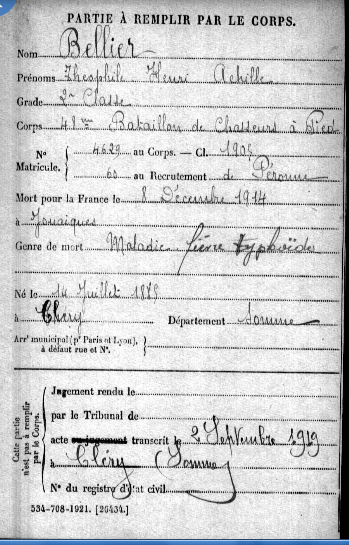 PARTIE À REMPLIR PAR LE CORPS.
Nom Bellier
Prénoms Théophile Henri Achille
Grade 2me Classe
Corps 48me Bataillon de Chasseurs à Pied
N° Matricule. { 4629 au Corps. — Cl. 1905
60 au Recrutement de Péronne
Mort pour la France le 8 Décembre 1914
à
Genre de mort Maladie fièvre typhoïde
Né le 14 Juillet 1885
à Cléry Département Somme
Arrt municipal (pr Paris et Lyon), à défaut rue et N°.
Cette partie n'est pas à remplir par le Corps.
Jugement rendu le
par le Tribunal de
acte ou jugement transcrit le 2 Septembre 1919
à Cléry (Somme)
N° du registre d'état civil
534-708-1921. [26434.]